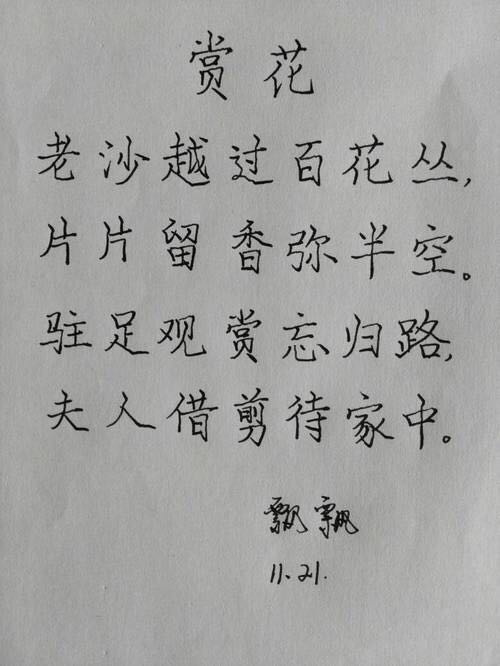 赏花
老沙越过百花丛,
片片留香弥半空。
驻足观赏忘归路,
夫人借剪待家中。
飘飘
11.21.